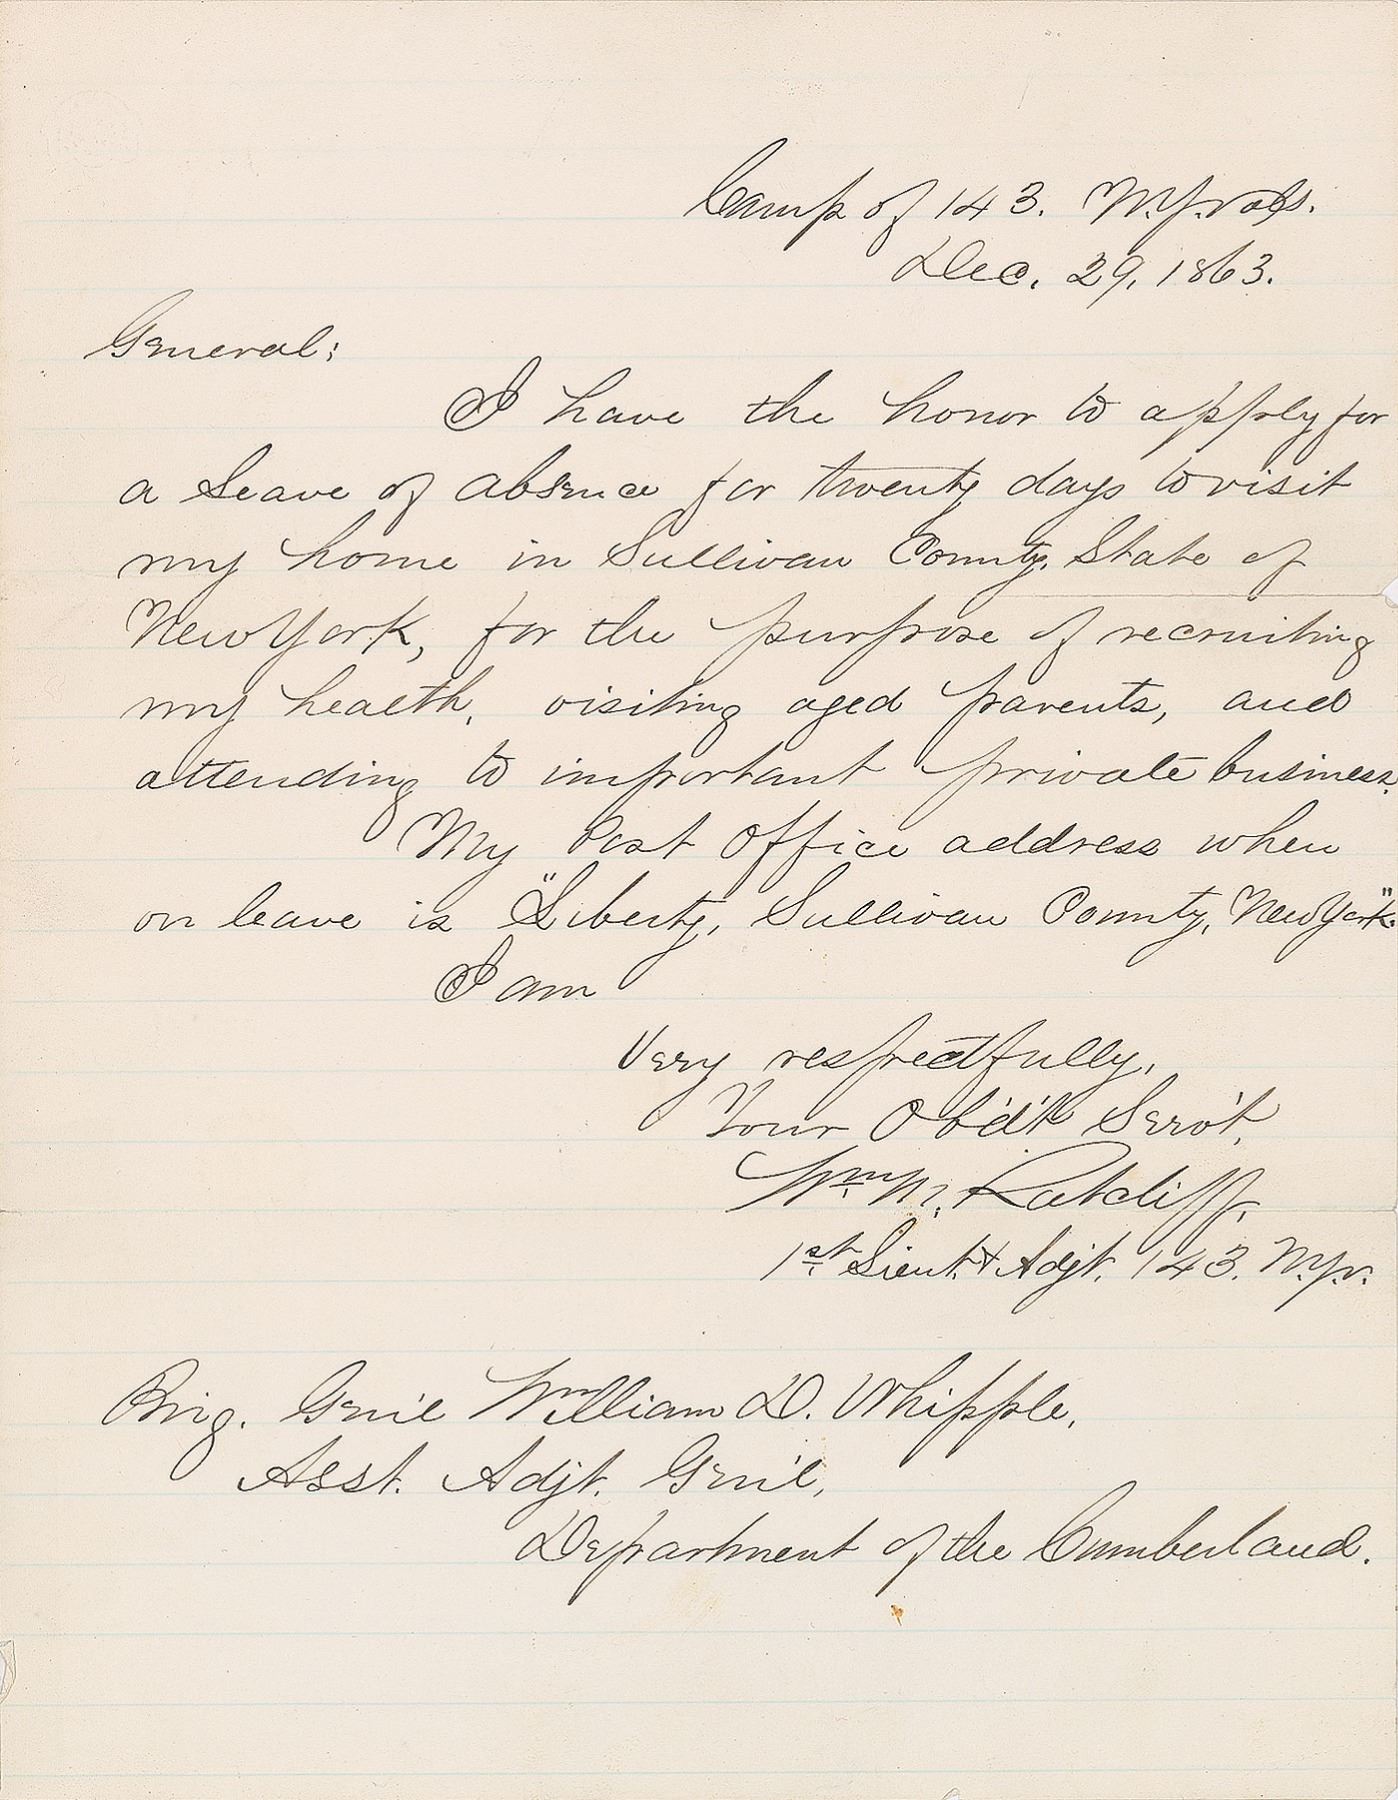 Camp of 143. N.Y. Vols.
Dec. 29, 1863.
General:
I have the honor to apply for
a Leave of absence for twenty days to visit
my home in Sullivan County, State of
New York, for the purpose of recruiting
my health, visiting aged parents, and
attending to important private business.
My Post Office address when
on leave is "Liberty, Sullivan County, New York."
I am
Very respectfully,
Your Ob'd't Serv't,
Wm M. Ratcliff,
1st Lieut. & Adjt. 143. N.Y.V.
Brig. Gen'l William D. Whipple,
Asst. Adjt. Gen'l,
Department of the Cumberland.